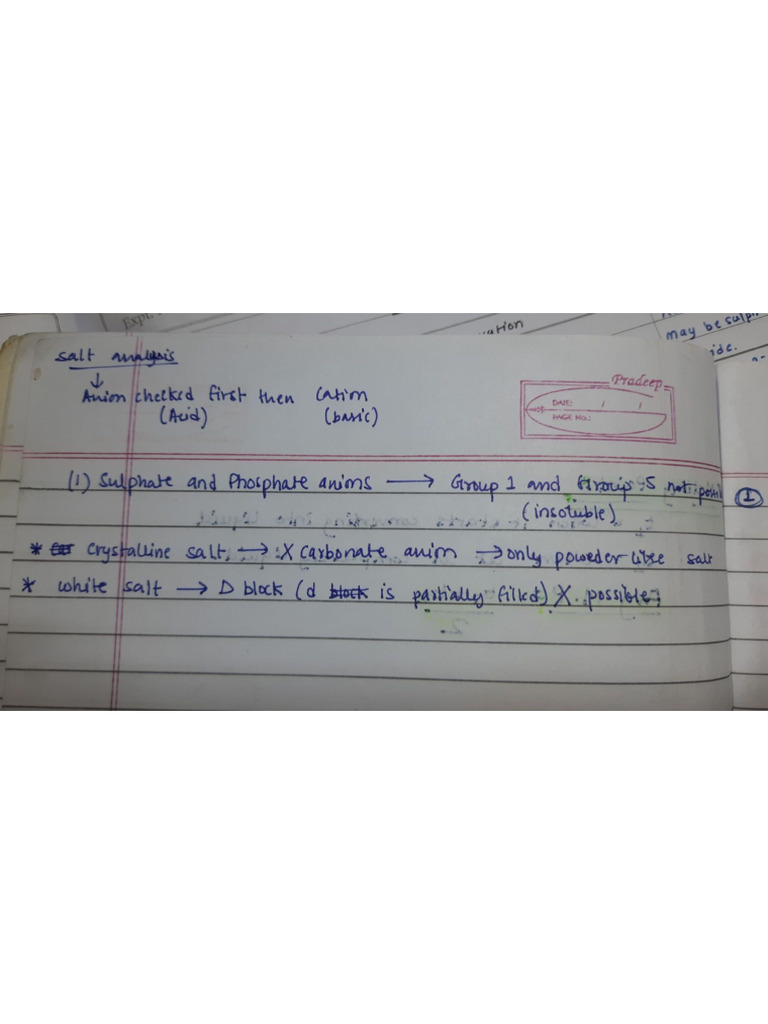 Expt.
vation
may be sulp
ide.
Salt analysis
↓
Anion checked first then Cation
(Acid) (basic)
Pradeep
DATE: / /
PAGE NO.:
(1) Sulphate and Phosphate anions → Group 1 and Group 5 not possi
(insoluble)
①
* Crystalline salt → X carbonate anion → only powder like salt
* White salt → D block (d block is partially filled) X possible,
2.